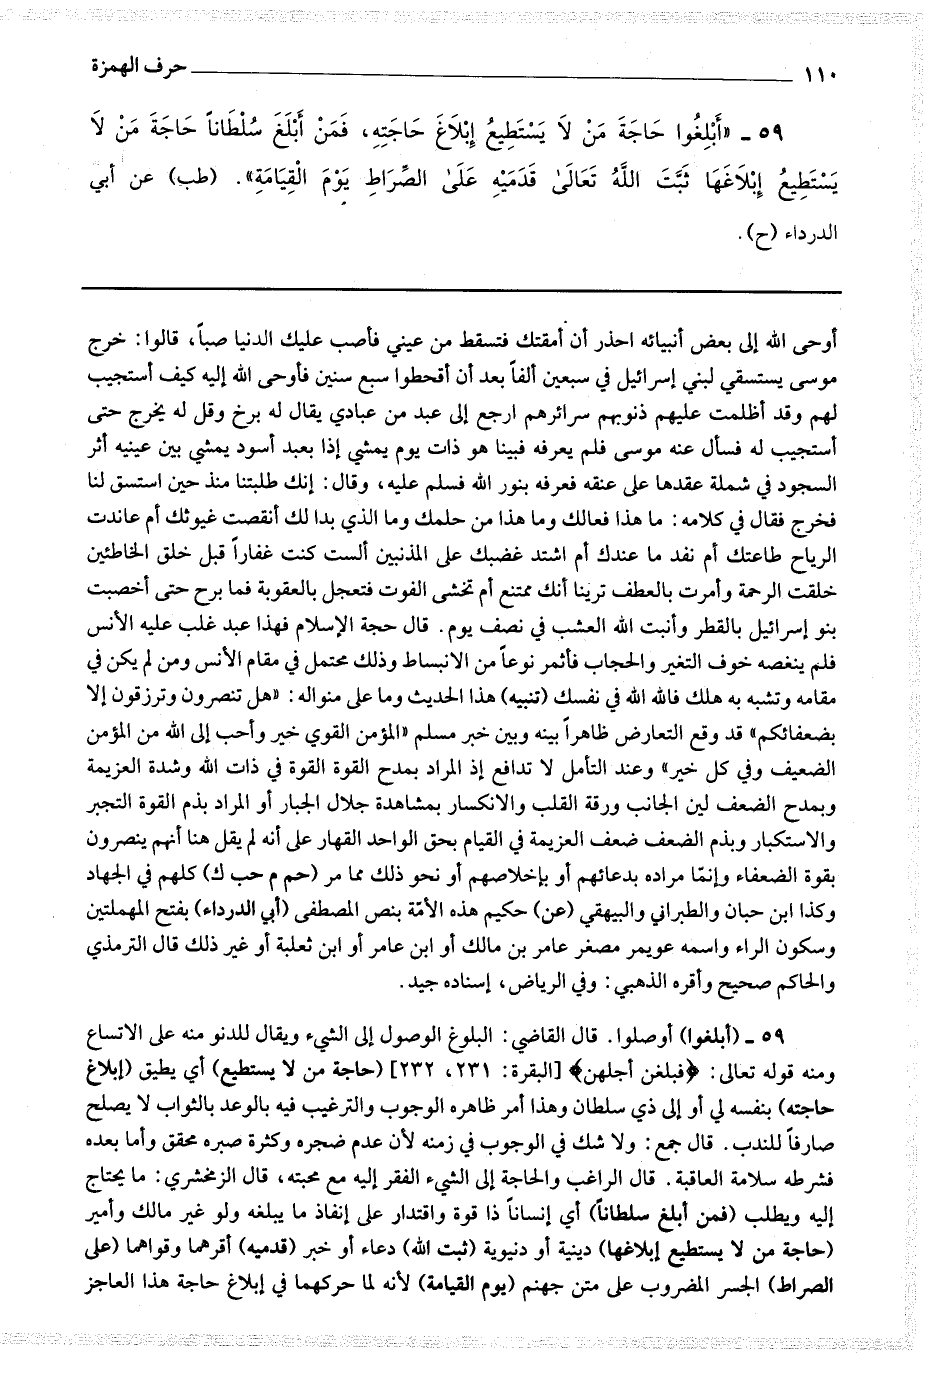 ١١٠ حرف الهمزة
٥٩ ـ «أَبْلِغُوا حَاجَةَ مَنْ لَا يَسْتَطِيعُ إِبْلَاغَ حَاجَتِهِ، فَمَنْ أَبْلَغَ سُلْطَاناً حَاجَةَ مَنْ لَا
يَسْتَطِيعُ إِبْلَاغَهَا ثَبَّتَ اللَّهُ تَعَالَىٰ قَدَمَيْهِ عَلَىٰ الصِّرَاطِ يَوْمَ الْقِيَامَةِ». (طب) عن أبي
الدرداء (ح).
أوحى الله إلى بعض أنبيائه احذر أن أمقتك فتسقط من عيني فأصب عليك الدنيا صباً، قالوا: خرج
موسى يستسقي لبني إسرائيل في سبعين ألفاً بعد أن أقحطوا سبع سنين فأوحى الله إليه كيف أستجيب
لهم وقد أظلمت عليهم ذنوبهم سرائرهم ارجع إلى عبد من عبادي يقال له برخ وقل له يخرج حتى
أستجيب له فسأل عنه موسى فلم يعرفه فبينا هو ذات يوم يمشي إذا بعبد أسود يمشي بين عينيه أثر
السجود في شملة عقدها على عنقه فعرفه بنور الله فسلم عليه، وقال: إنك طلبتنا منذ حين استسق لنا
فخرج فقال في كلامه: ما هذا فعالك وما هذا من حلمك وما الذي بدا لك أنقصت غيوثك أم عاندت
الرياح طاعتك أم نفد ما عندك أم اشتد غضبك على المذنبين ألست كنت غفاراً قبل خلق الخاطئين
خلقت الرحمة وأمرت بالعطف ترينا أنك ممتنع أم تخشى الفوت فتعجل بالعقوبة فما برح حتى أخصبت
بنو إسرائيل بالقطر وأنبت الله العشب في نصف يوم. قال حجة الإسلام فهذا عبد غلب عليه الأنس
فلم ينغصه خوف التغير والحجاب فأثمر نوعاً من الانبساط وذلك محتمل في مقام الأنس ومن لم يكن في
مقامه وتشبه به هلك فالله الله في نفسك (تنبيه) هذا الحديث وما على منواله: «هل تنصرون وترزقون إلا
بضعفائكم» قد وقع التعارض ظاهراً بينه وبين خبر مسلم «المؤمن القوي خير وأحب إلى الله من المؤمن
الضعيف وفي كل خير» وعند التأمل لا تدافع إذ المراد بمدح القوة القوة في ذات الله وشدة العزيمة
وبمدح الضعف لين الجانب ورقة القلب والانكسار بمشاهدة جلال الجبار أو المراد بذم القوة التجبر
والاستكبار وبذم الضعف ضعف العزيمة في القيام بحق الواحد القهار على أنه لم يقل هنا أنهم ينصرون
بقوة الضعفاء وإنّما مراده بدعائهم أو بإخلاصهم أو نحو ذلك مما مر (حم م حب ك) كلهم في الجهاد
وكذا ابن حبان والطبراني والبيهقي (عن) حكيم هذه الأمّة بنص المصطفى (أبي الدرداء) بفتح المهملتين
وسكون الراء واسمه عويمر مصغر عامر بن مالك أو ابن عامر أو ابن ثعلبة أو غير ذلك قال الترمذي
والحاكم صحيح وأقره الذهبي: وفي الرياض، إسناده جيد.
٥٩ ـ (أبلغوا) أوصلوا. قال القاضي: البلوغ الوصول إلى الشيء ويقال للدنو منه على الاتساع
ومنه قوله تعالى: ﴿فبلغن أجلهن﴾ [البقرة: ٢٣١، ٢٣٢] (حاجة من لا يستطيع) أي يطيق (إبلاغ
حاجته) بنفسه لي أو إلى ذي سلطان وهذا أمر ظاهره الوجوب والترغيب فيه بالوعد بالثواب لا يصلح
صارفاً للندب. قال جمع: ولا شك في الوجوب في زمنه لأن عدم ضجره وكثرة صبره محقق وأما بعده
فشرطه سلامة العاقبة. قال الراغب والحاجة إلى الشيء الفقر إليه مع محبته، قال الزمخشري: ما يحتاج
إليه ويطلب (فمن أبلغ سلطاناً) أي إنساناً ذا قوة واقتدار على إنفاذ ما يبلغه ولو غير مالك وأمير
(حاجة من لا يستطيع إبلاغها) دينية أو دنيوية (ثبت الله) دعاء أو خبر (قدميه) أقرهما وقواهما (على
الصراط) الجسر المضروب على متن جهنم (يوم القيامة) لأنه لما حركهما في إبلاغ حاجة هذا العاجز